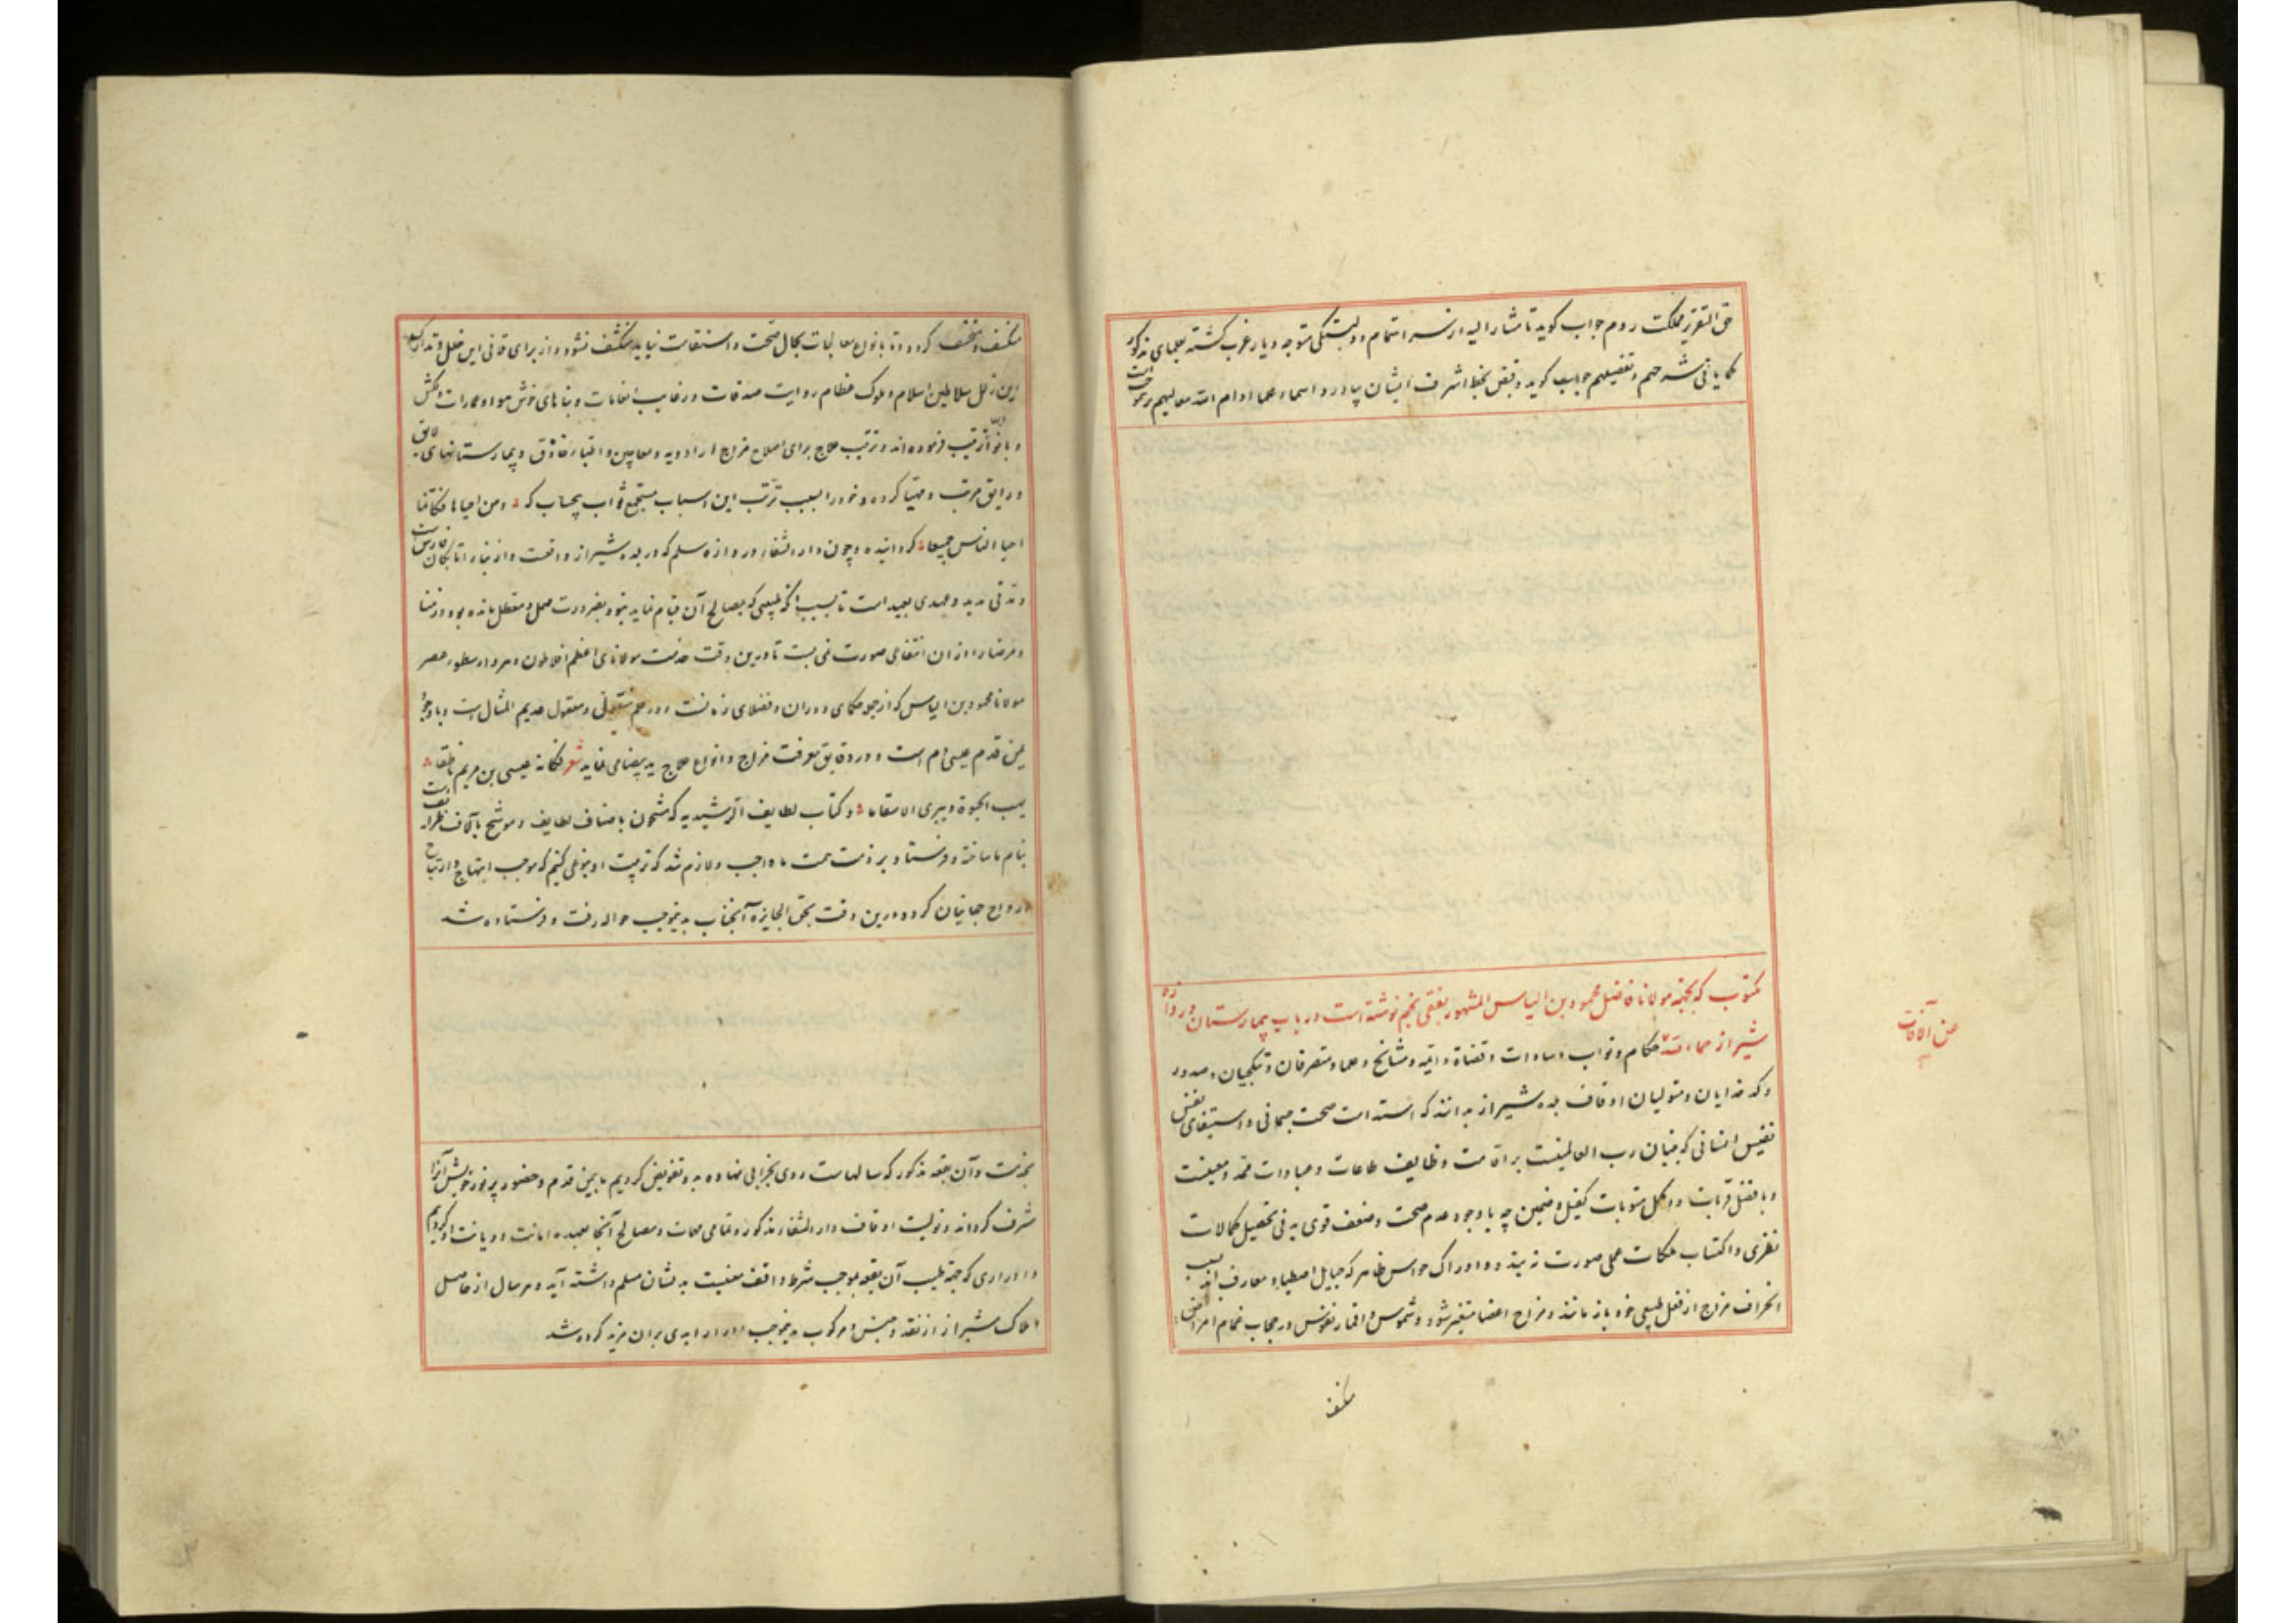 حق التقریر مملکت روم جواب گوید تا مشار الیه از سر اهتمام و دلبستگی متوجه دیار غرب کشته بعلمای مذکور
کما یاتی شرحهم و تفصیلهم جواب گوید و قبض بخط اشرف ایشان بیاورد و اسماء علما ادام الله معالیهم
مکتوب که بجهة مولانا فاضل محمود بن الیاس المشهور بفقی نجم نوشته است در باب بیمارستان دروازه
شیراز حماه الله حکام و نواب و سادات و قضاة و ائمه و مشایخ و علما و متصرفان و بتکچیان و صدور
عن الآفات
و کدخدایان و متولیان اوقاف بلده شیراز بدانند که استدامت صحت جسمانی و استبقای نفس
نفیس انسانی که بنیان رب العالمینست بر اقامت وظایف طاعات و عبادات ممد و معینست
و با فضل قربات و اکمل مثوبات کفیل و ضمین چه با وجود عدم صحت و ضعف قوی بدنی تحصیل کمالات
نظری و اکتساب ملکات عملی صورت نه بندد و ادراک حواس ظاهر که حبایل اصطیاد معارف اند بسبب
انحراف مزاج از فعل طبیعی خود باز مانند و مزاج اعضا متغیر شود و شموس و اقمار نفوس در حجاب غمام امراض
منکسف
منکسف و منخسف کردد و تا بانواع معالجات بحال صحت و استقامت نیاید منکشف نشود و از برای تلافی این خلل و تدارک
این زلل سلاطین اسلام و ملوک عظام روایت صدقات و رغایب انعامات و بناهای خوش هوا و عمارات دلکش
و بانواع ترتیب فرموده اند و ترتیب علاج برای اصلاح مزاج از ادویه و معاجین و اطباء حاذق و بیمارستانهای لایق
و رایق مرتب و مهیا کرده و خود را بسبب ترتب این اسباب مستجمع ثواب بیحساب که و من احیاها فکانما
احیا الناس جمیعا کردانیده و چون دار الشفاء دروازه سلم که در بلده شیراز واقعست و از بناء اتابکان فارس است
و مدتی مدید و عهدی بعید است تا بسبب آنکه طبیبی که بمصالح آن قیام نماید نبود بضرورت مهمل و معطل مانده بود و زمنا
و مرضا را از ان انتفاعی صورت نمی بست تا درین وقت خدمت مولانای اعظم افلاطون دهر و ارسطوی عصر
مولانا محمود بن الیاس که از جمله حکمای دوران و فضلای زمانست و در علم منقول و معقول عدیم المثال است و باوجود
یمن قدم عیسی دم است و در دقایق معرفت مزاج و انواع علاج ید بیضا می نماید شعر فکانه عیسی بن مریم ناطقا
یهب الحیوة و یبری الاسقاما و کتاب لطایف الرشیدیه که مشحون باصناف لطایف و موشح
بنام ما ساخته و فرستاد بر ذمت همت ما واجب و لازم شد که تربیت او بنوعی کنیم که موجب ابتهاج و ارتیاح
ارواح جهانیان کردد و درین وقت بحق الجایزه آنجناب بدینموجب حواله رفت و فرستاده شد
بخدمت و آن بقعه مذکور که سالهاست روی بخرابی نهاده بدو تفویض کردیم تا بیمن قدم و حضور پر نور خویش آنرا
مشرف کرداند و تولیت اوقاف دار الشفاء مذکور و تمامی مهمات و مصالح آنجا بعهده امانت و دیانت او کردیم
و ادراری که جهة طبیب آن بقعه بموجب شرط واقف معینست بدیشان مسلم داشته آید و هر سال از حاصل
املاک شیراز از نقد و جنس و مرکوب بدینموجب ادرار ابدی بران مزید کرده شد